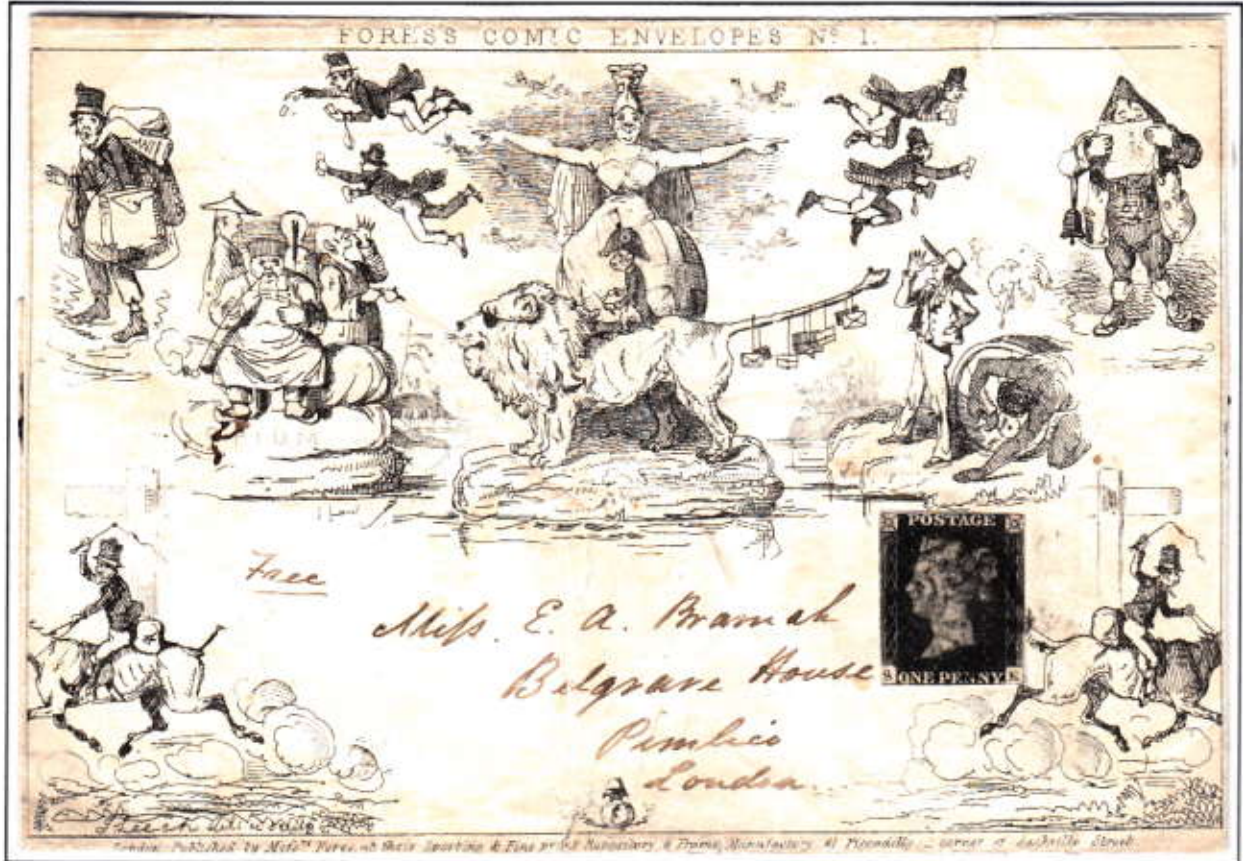 FORES'S COMIC ENVELOPES No. 1.
OPIUM
POSTAGE
ONE PENNY
Free
Miss. E. A. Bramah
Belgrave House
Pimlico
London
London Published by Messrs Fores at their Sporting & Fine print Repository & Frame Manufactory 41 Piccadilly _ corner of Sackville Street